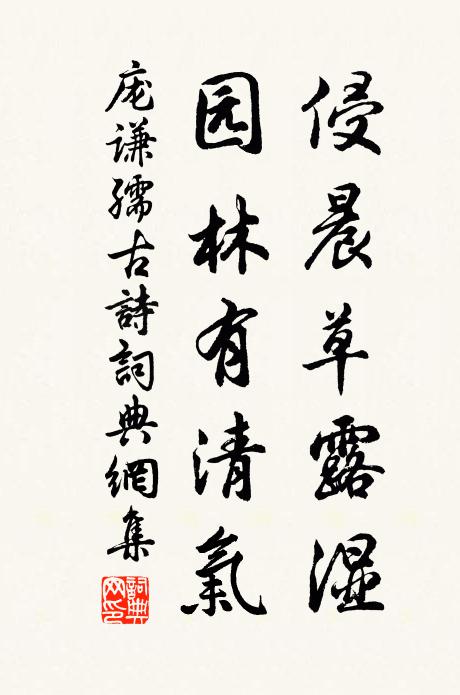 侵晨草露湿
园林有清氣
庞谦孺古詩詞典網集
詞典網印